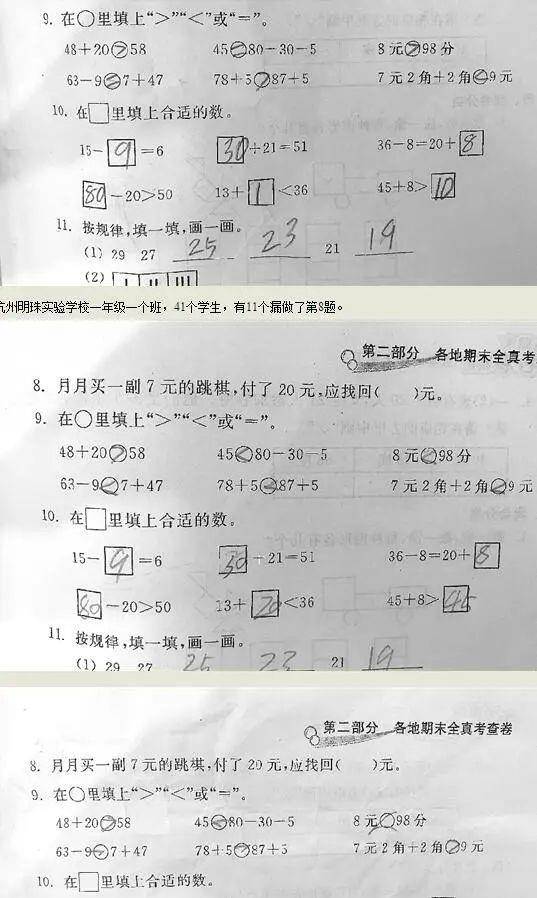 9. 在○里填上“>”“<”或“=”。
48+20>58 45=80-30-5 8元>98分
63-9=7+47 78+5>87+5 7元2角+2角=9元
10. 在□里填上合适的数。
15-9=6 30÷21=51 36-8=20+8
80-20>50 13+1<36 45+8>10
11. 按规律,填一填,画一画。
(1) 29 27 25 23 21 19
(2)
杭州明珠实验学校一年级一个班，41个学生，有11个漏做了第8题。
第二部分 各地期末全真考
8. 月月买一副7元的跳棋,付了20元,应找回( )元。
9. 在○里填上“>”“<”或“=”。
48+20>58 45<80-30-5 8元 98分
63-9 7+47 78+5 87+5 7元2角+2角 9元
10. 在□里填上合适的数。
15-9=6 30+21=51 36-8=20+8
80-20>50 13+20<36 45+8>45
11. 按规律,填一填,画一画。
(1) 29 27 25 23 21 19
第二部分 各地期末全真考查卷
8. 月月买一副7元的跳棋,付了20元,应找回( )元。
9. 在○里填上“>”“<”或“=”。
48+20>58 45 80-30-5 8元 98分
63-9 7+47 78+5 87+5 7元2角+2角 9元
10. 在□里填上合适的数。